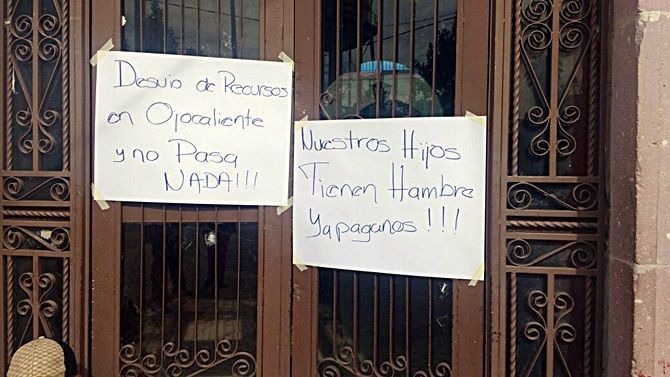 Desvio de Recursos
en Ojocaliente
y no Pasa
NADA!!!
Nuestros Hijos
Tienen Hambre
Ya paganos !!!